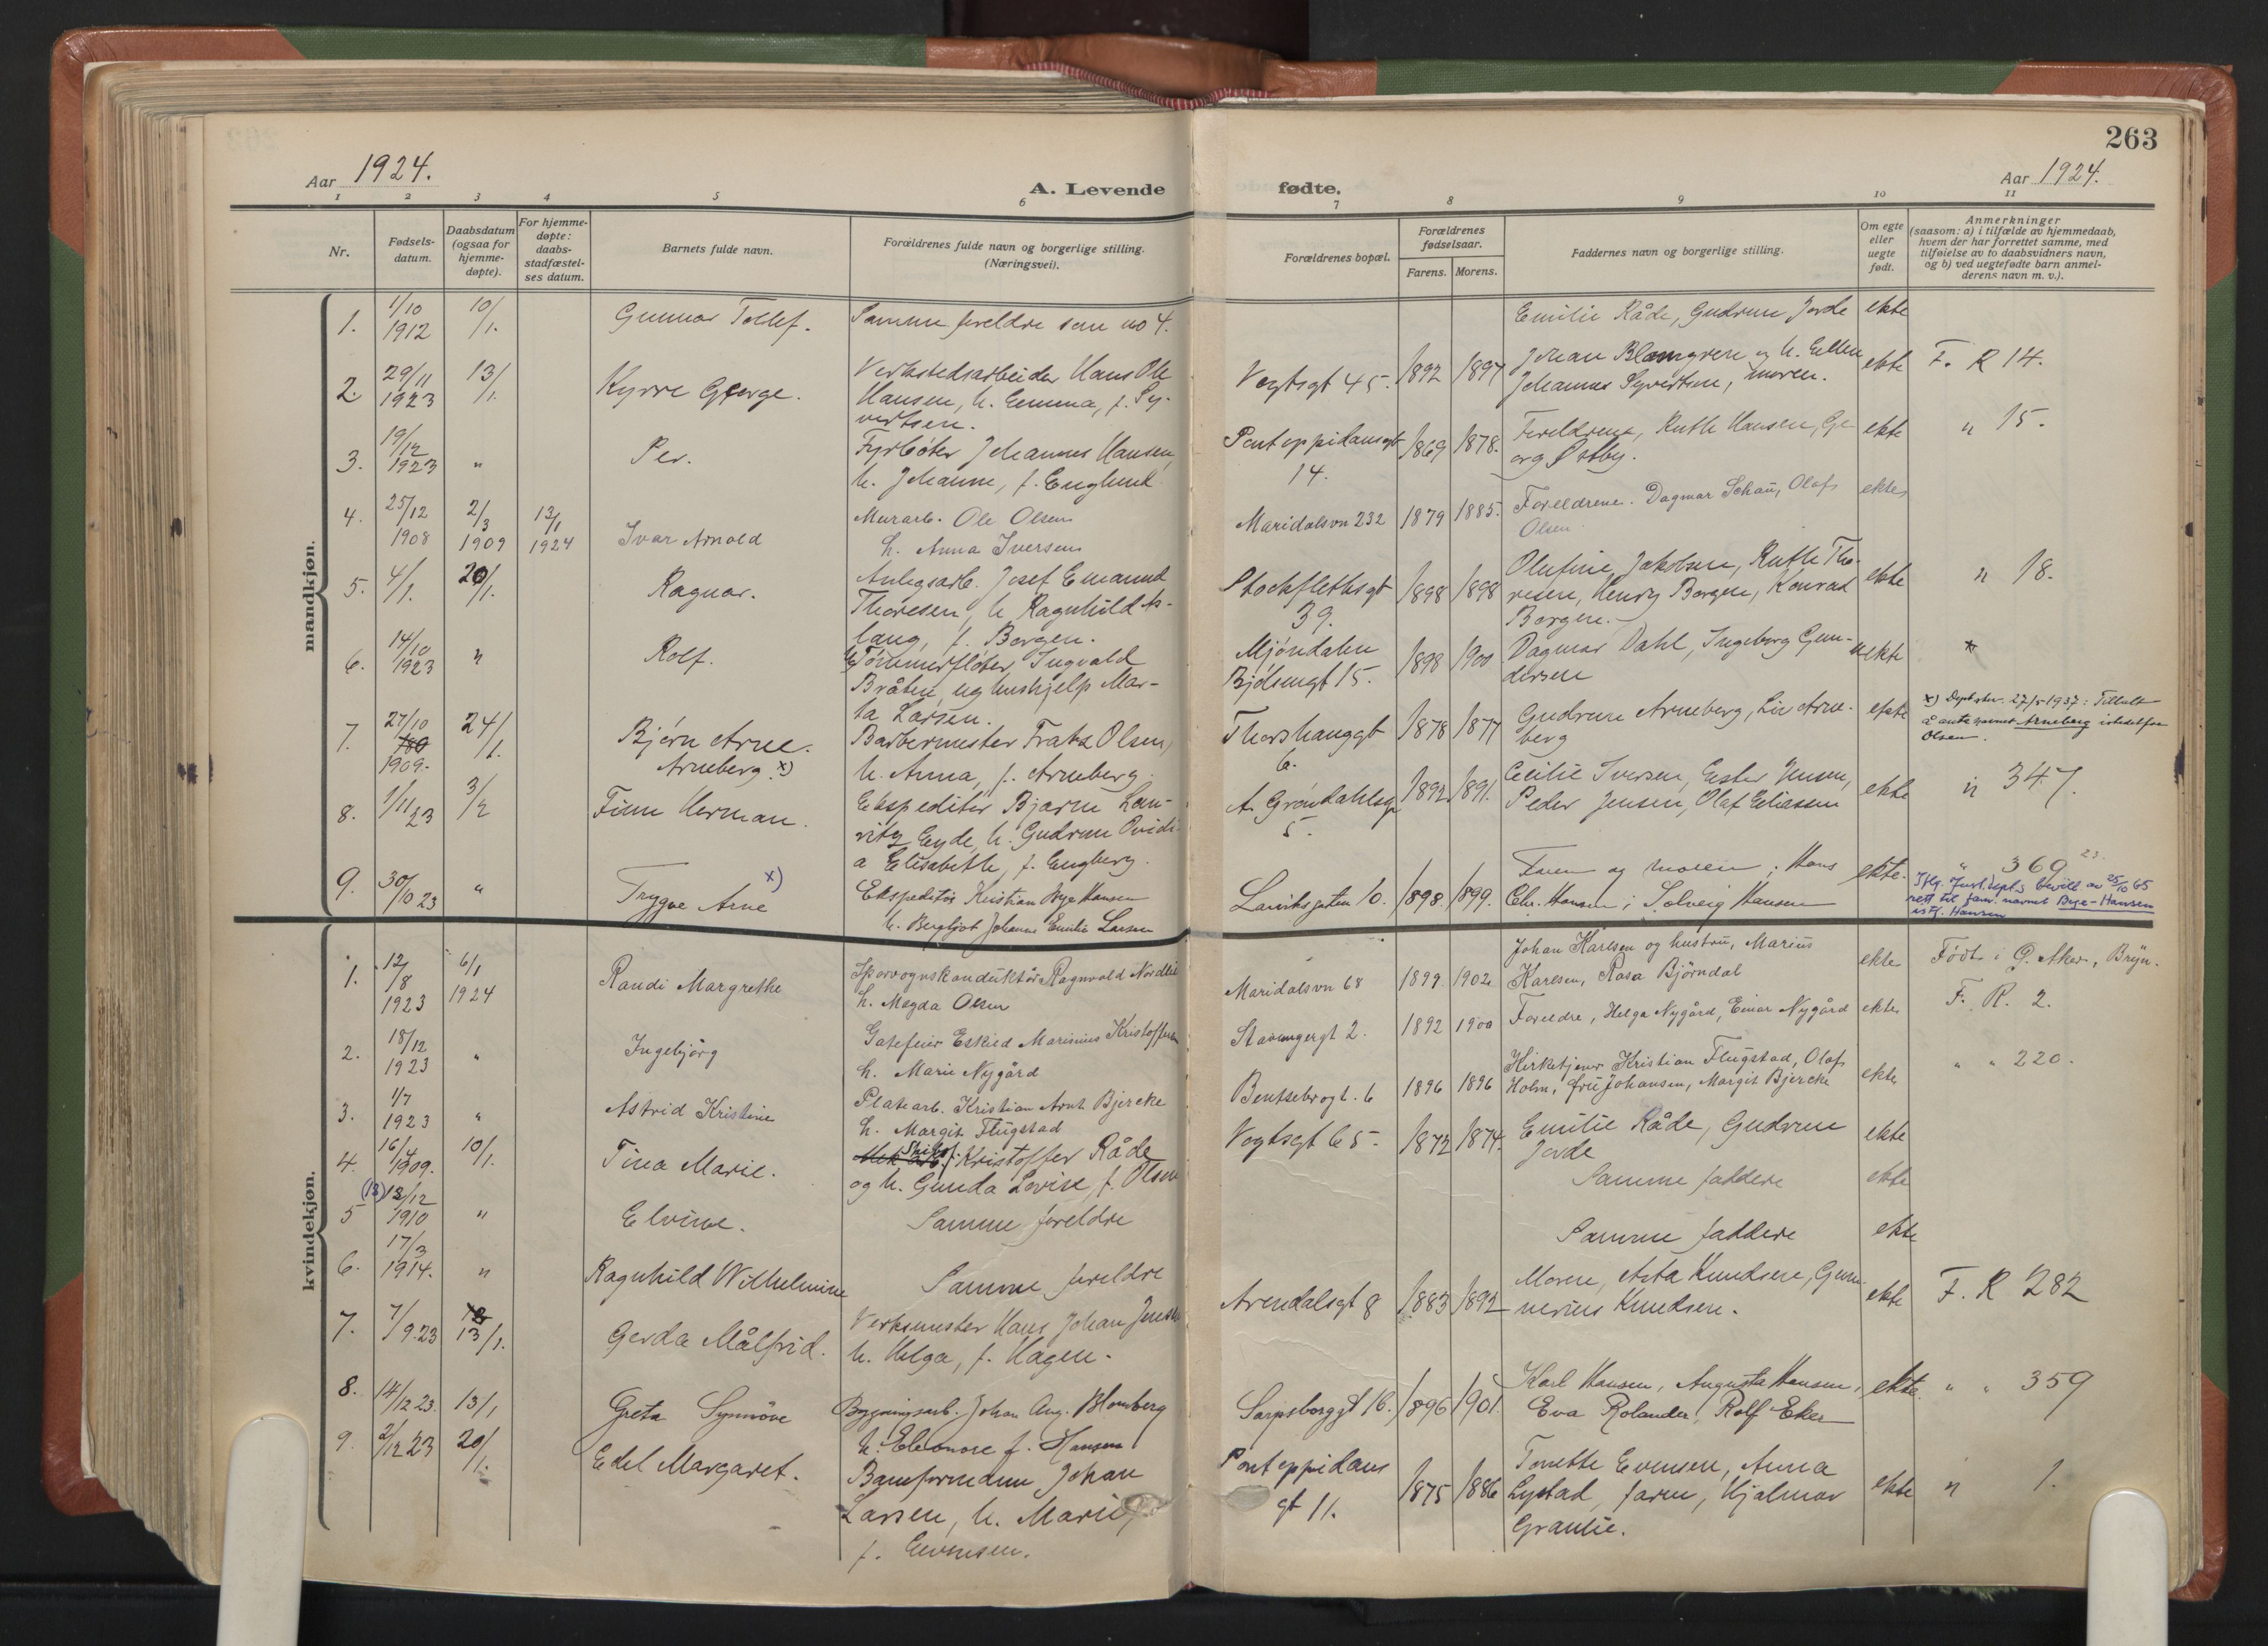 263
Aar 1924.
A. Levende fødte.
Aar 1924.
1 2 3 4 5 6 7 8 9 10 11
Nr.
Fødsels-
datum.
Daabsdatum
(ogsaa for
hjemme-
døpte).
For hjemme-
døpte:
daabs-
stadfæstel-
ses datum.
Barnets fulde navn.
Forældrenes fulde navn og borgerlige stilling.
(Næringsvei).
Forældrenes bopæl.
Forældrenes
fødselsaar.
Farens. Morens.
Faddernes navn og borgerlige stilling.
Om egte
eller
uegte
født.
Anmerkninger
(saasom: a) i tilfælde av hjemmedaab,
hvem der har forrettet samme, med
tilføielse av to daabsvidners navn,
og b) ved uegtefødte barn anmel-
derens navn m. v.).
mandkjøn.
1. 1/10 1912 10/1. Gunnar Tollef. Samme foreldre som no 4. Emilie Råde, Gudrun Jorde ekte
2. 29/11 1923 13/1. Kyrre George. Verkstedsarbeider Hans Ole
Hansen, h. Emma, f. Sy-
vertsen.
Vogtsgt 45. 1892 1897 Johan Blomgren og h. Ellen
Johannes Syvertsen, moren. ekte F. R 14.
3. 19/12 1923 " Per. Fyrbøter Johannes Hansen
h. Johanne, f. Englund
Pontoppidansgt
14. 1869 1878. Foreldrene, Ruth Hansen, Ge-
org Østby. ekte " 15.
4. 25/12 1908 2/3 1909 13/1 1924 Ivar Arnold Murarb. Ole Olsen
h. Anna Iversen
Maridalsvn 232 1879 1885. Foreldrene. Dagmar Schau, Olaf
Olsen ekte
5. 4/1. 20/1. Ragnar. Anlegsarb. Josef Emanuel
Thoresen, h. Ragnhild As-
laug, f. Borgen.
Stockflethsgt
39. 1898 1898 Olufine Jakobsen, Ruth Tho-
resen, Henry Borgen, Konrad
Borgen. ekte " 18.
6. 14/10 1923 " Rolf. Tømmerfløter Ingvald
Bråten, ug hushjelp Mar-
ta Larsen.
Mjøndalen
Bjølsengt 15. 1898 1900 Dagmar Dahl, Ingeborg Gun-
dersen uekte
7. 27/10 1909. 24/1. Bjørn Arne.
Arneberg. x) Barbermester Frantz Olsen,
h. Anna, f. Arneberg.
Thorshauggt
6. 1878 1877 Gudrun Arneberg, Liv Arne-
berg ekte x) Dept. skr. 27/5 1937: Tillatt
å anta navnet Arneberg istedetfor
Olsen.
8. 1/11 23 3/2 Finn Herman. Ekspeditør Bjarne Lau-
ritz Eyde, h. Gudrun Ovidi-
a Elisabeth, f. Engberg.
A. Grøndahlsg
5. 1892 1891. Cecilie Iversen, Ester Jensen,
Peder Jensen, Olaf Eliassen ekte " 347.
9. 30/10 23 " Trygve Arne x) Ekspeditør Kristian Bye Hansen
h. Bergljot Johanne Emilie Larsen
Larviksgaten 10. 1898. 1899. Faren og moren; Hans
Chr. Hansen; Solveig Hansen ekte. " 369 23.
Iflg. Just.dept.s bevill. av 25/10 65
rett til fam. navnet Bye-Hansen
istf. Hansen
kvindekjøn.
1. 12/8 1923 6/1 1924 Randi Margrethe Sporvognskonduktør Ragnvald Nordlie
h. Magda Olsen
Maridalsvn 68 1899. 1902. Johan Karlsen og hustru, Marius
Karlsen, Rosa Bjørndal ekte Født i Ø. Aker, Bryn.
2. 18/12 1923 " Ingebjørg Gatefeier Eskild Marinius Kristoffersen
h. Marie Nygård
Stavangergt 2. 1892 1900 Foreldre, Helga Nygård, Einar Nygård ekte F. R. 2.
3. 1/7 1923 " Astrid Kristine Platearb. Kristian Arnt Bjercke
h. Margit Flugstad
Bentsebrogt. 6 1896 1896 Kirketjener Kristian Flugstad, Olaf
Holm, fru Johansen, Margit Bjercke ekte " " 220.
4. 16/4 1909. 10/1. Tina Marie. Kristoffer Råde
og h. Gunda Lovise, f. Olsen
Vogtsgt 65. 1872 1874. Emilie Råde, Gudrun
Jorde ekte
5 (13) 12/12 1910 " Elvine. Samme foreldre Samme faddere ekte
6. 17/3 1914. " Ragnhild Wilhelmine Samme foreldre Samme faddere ekte
7. 7/9.23 13/1. Gerda Målfrid. Verksmester Hans Johan Jensen
h. Helga, f. Hagen.
Arendalsgt 8 1883 1892 Moren, Asta Knudsen, Gun-
nerius Knudsen. ekte F. R 282
8. 14/12 23. 13/1 Greta Synnöve Bygningsarb. Johan Aug. Blomberg
h. Eleonore f. Hansen
Sarpsborggt 16. 1896 1901. Karl Hansen, Augusta Hansen,
Eva Rolander, Rolf Eker ekte. " " 359
9. 2/12 23 20/1. Edel Margaret. Baneformann Johan
Larsen, h. Marie,
f. Evensen.
Pontoppidans
gt 11. 1875 1886 Tonette Evensen, Anna
Lystad, faren, Hjalmar
Granlie. ekte " 1.